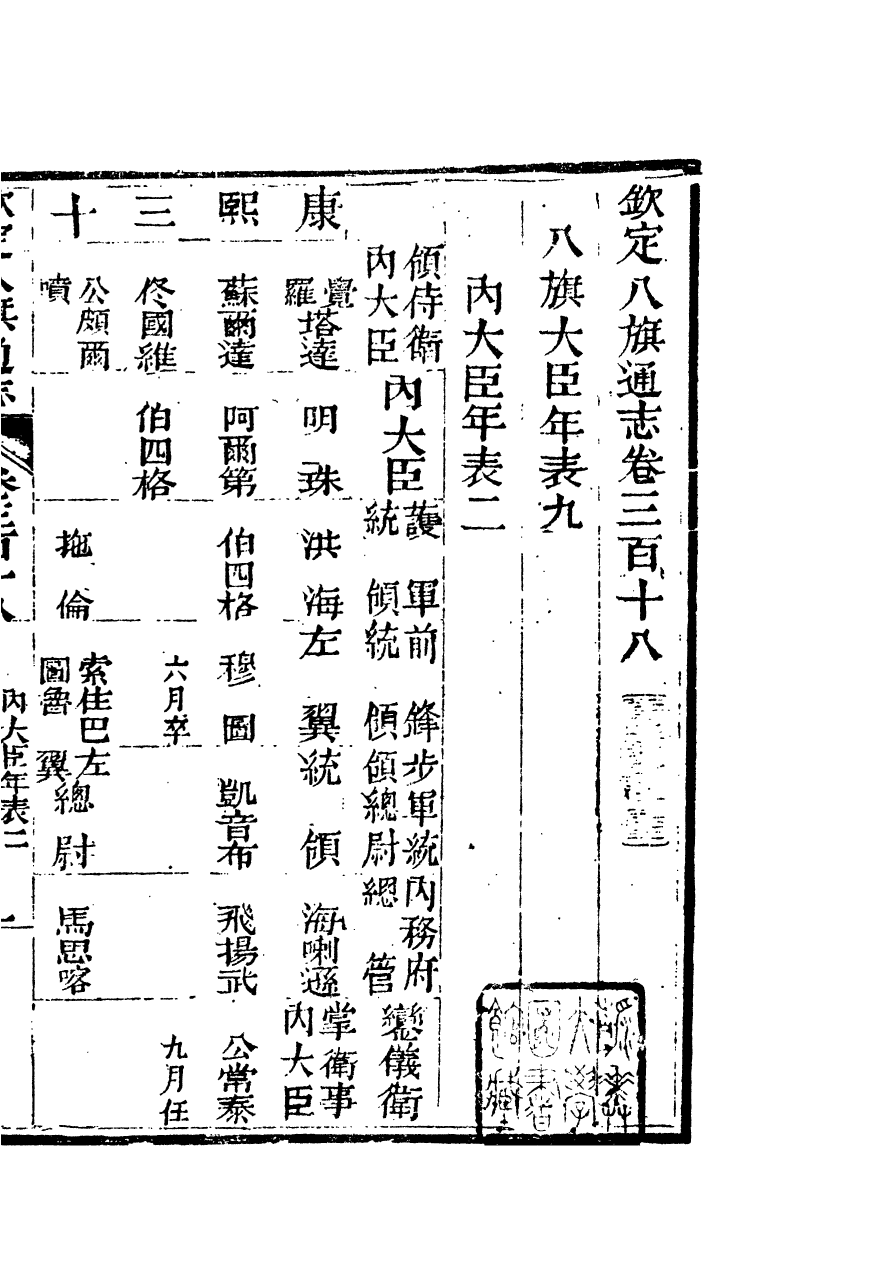 欽定八旗通志卷三百十八
八旗大臣年表九
內大臣年表二
領侍衛內大臣 內大臣 護軍統領 前鋒統領 步軍統領總尉 內務府總管 鑾儀衛
康 覺羅塔達 明珠 洪海 左翼統領 海喇遜 掌衛事內大臣
熙 蘇爾達 阿爾第 伯四格 穆圖 凱音布 飛揚武 公常泰
三 佟國維 伯四格 六月卒 九月任
十 公頗爾噴 拖倫 索住巴圖魯 左翼總尉 馬思喀
欽定八旗通志 卷三百十八 內大臣年表二 一